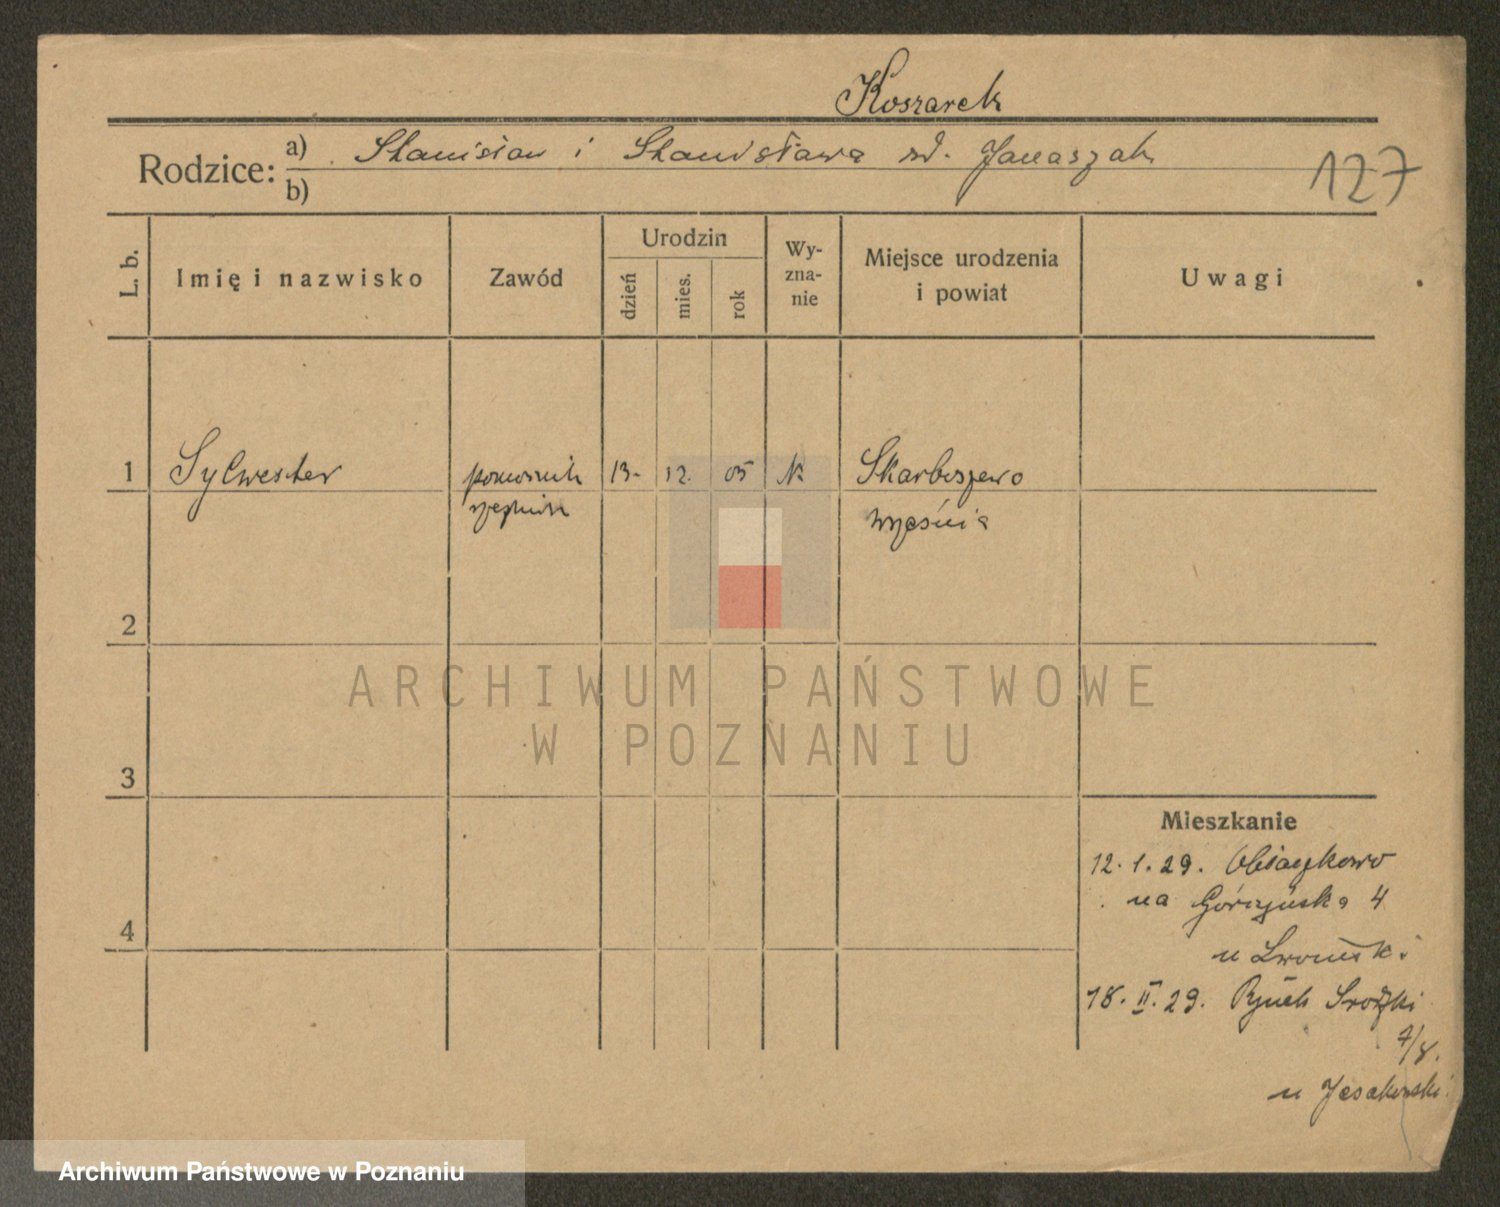 Koszarek
Rodzice: a) Stanisław i Stanisława rd. Januszak
b)
127
L. b.
Imię i nazwisko
Zawód
Urodzin
dzień
mies.
rok
Wy-
zna-
nie
Miejsce urodzenia
i powiat
Uwagi
1 Sylwester pomocnik 13. 12. 05 Skarboszewo
Września
2
3
4
Mieszkanie
12. 1. 29.
na Górczyńska 4
u
18. II. 29. Rynek Srodzki
7/8.
u
ARCHIWUM PAŃSTWOWE
W POZNANIU
Archiwum Państwowe w Poznaniu